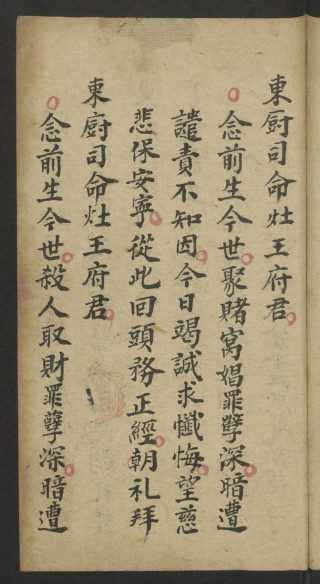 東厨司命灶王府君
念前生今世聚賭窩娼罪孽深暗遭
譴責不知因今日竭誠求懺悔望慈
悲保安寧從此回頭務正經朝礼拜
東厨司命灶王府君
念前生今世殺人取財罪孽深暗遭